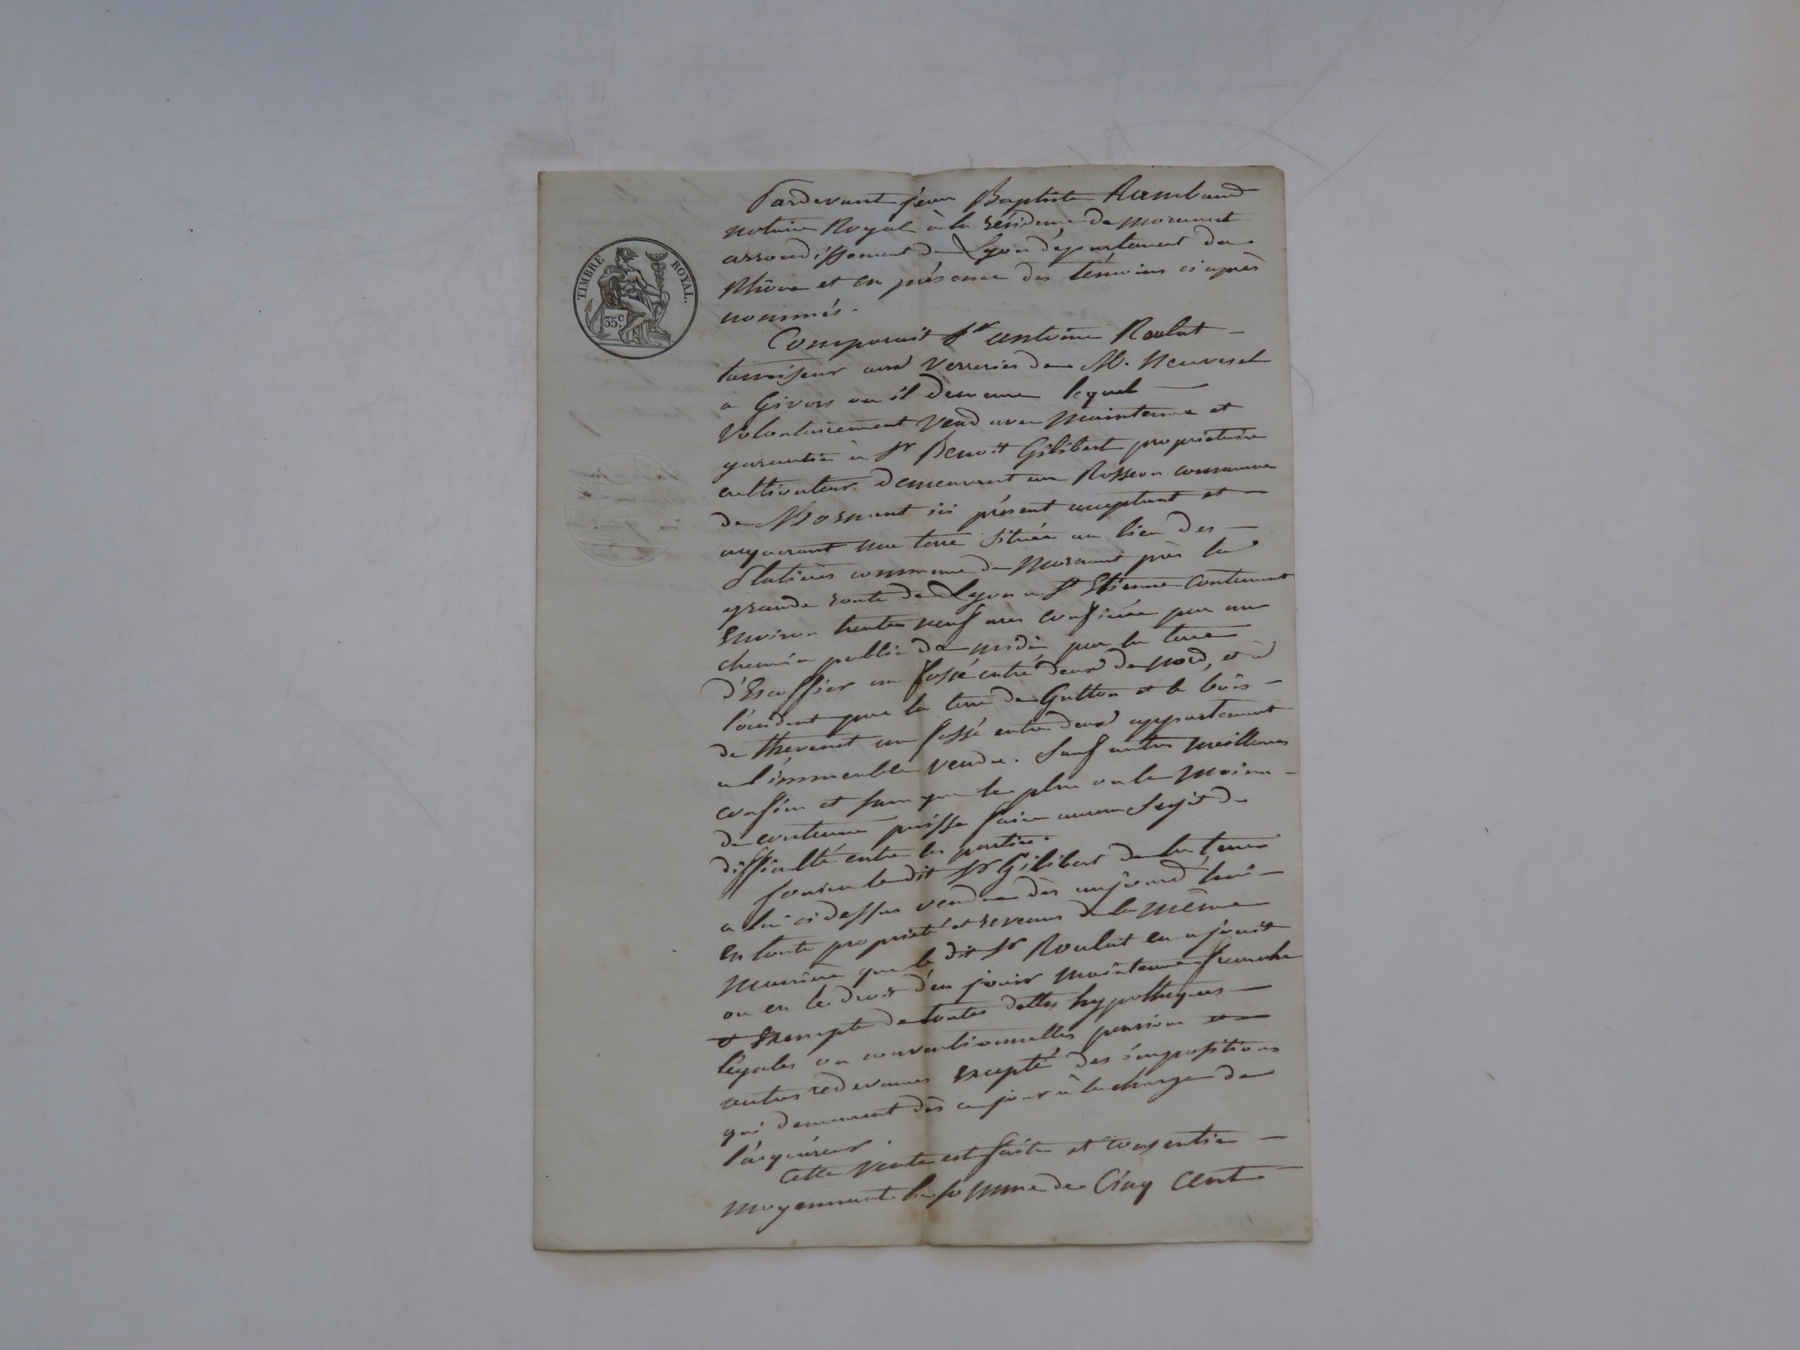 TIMBRE ROYAL.
35 c.
Pardevant jean Baptiste Rambaud
notaire Royal à la résidence de Mornant
arrondissement de Lyon département du
Rhône et en présence des témoins ci après
nommés.
Comparait Sr antoine Roulat
tamiseur aux Verreries de M. Neuvesel
a Givors ou il demeure lequel
Volontairement Vend avec Maintenue et
garantie à Sr Benoit Gilibert propriétaire
cultivateur demeurant au Rosseon commune
de Mornant ici présent acceptant et
acquerant une terre située au lieu des
Platières commune de Mornant près la
grande route de Lyon a St Etienne Contenant
Environ trente neuf ares confinée par un
chemin public de midi par la terre
d'Escoffier un fossé entre deux de nord, et à
l'occident par la terre de Gutton et le bois
de thevenet un fossé entre deux appartenant
a l'immeuble vendu. Sauf autres meilleures
confins et sans que le plus ou le Moins
de contenue puisse faire aucun Sujet de
difficulté entre les parties.
Jouira le dit Sr Gilibert de la terre
a lui ci dessus vendue dès aujourd'hui
en toute propriété et revenus de la Même
Manière que le dit Sr Roulat en a jouit
ou eu le droit d'en jouir Maintenue franche
& Exempte de toutes dettes hypothèques
légales ou conventionnelles pension
autres redevances Excepté des impositions
qui demeurent dès ce jour à la charge de
l'acquéreur.
Cette Vente est faite et consentie
moyennant la somme de Cinq Cent